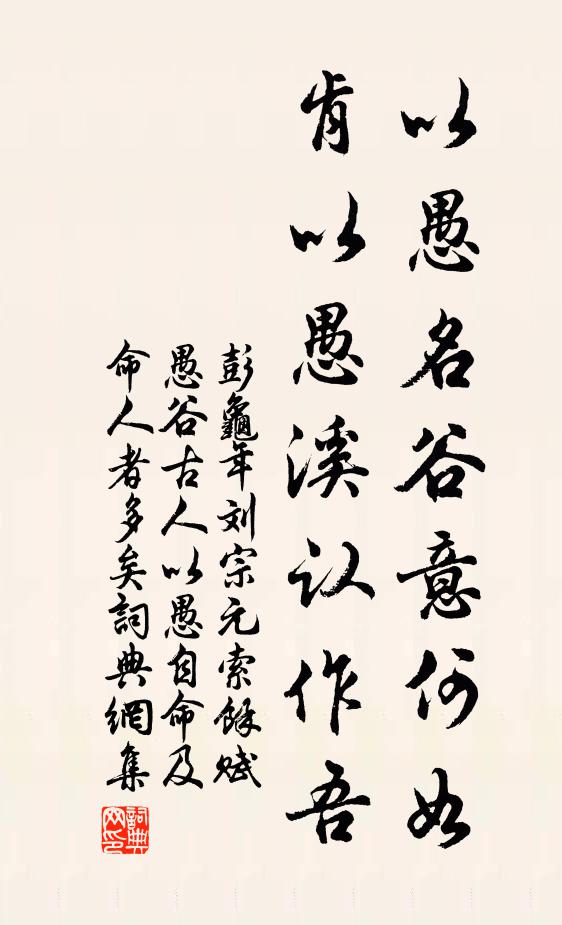 以愚名谷意何如
肯以愚溪认作吾
彭龜年刘宗元索餘赋
愚谷古人以愚自命及
命人者多矣詞典網集
詞典网印